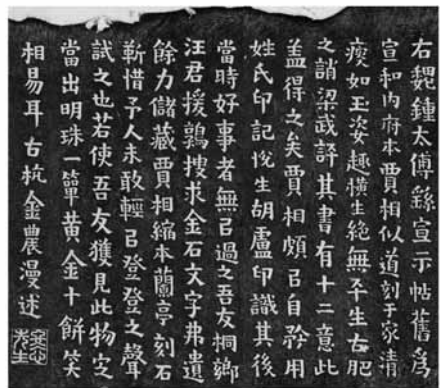 右魏鍾太傅繇宣示帖舊為
宣和内府本賈相似道刻于家清
瘦如玉姿趣橫生絶無平生古肥
之誚梁武評其書有十二意此
盖得之矣賈相頗㠯自矜用
姓氏印記悅生胡盧印識其後
當時好事者無㠯過之吾友桐鄉
汪君援鶉搜求金石文字弗遺
餘力儲藏賈相縮本蘭亭刻石
靳惜予人未敢輕㠯登登之聲
試之也若使吾友獲見此物定
當出明珠一簞黄金十餅笑
相易耳古杭金農漫述